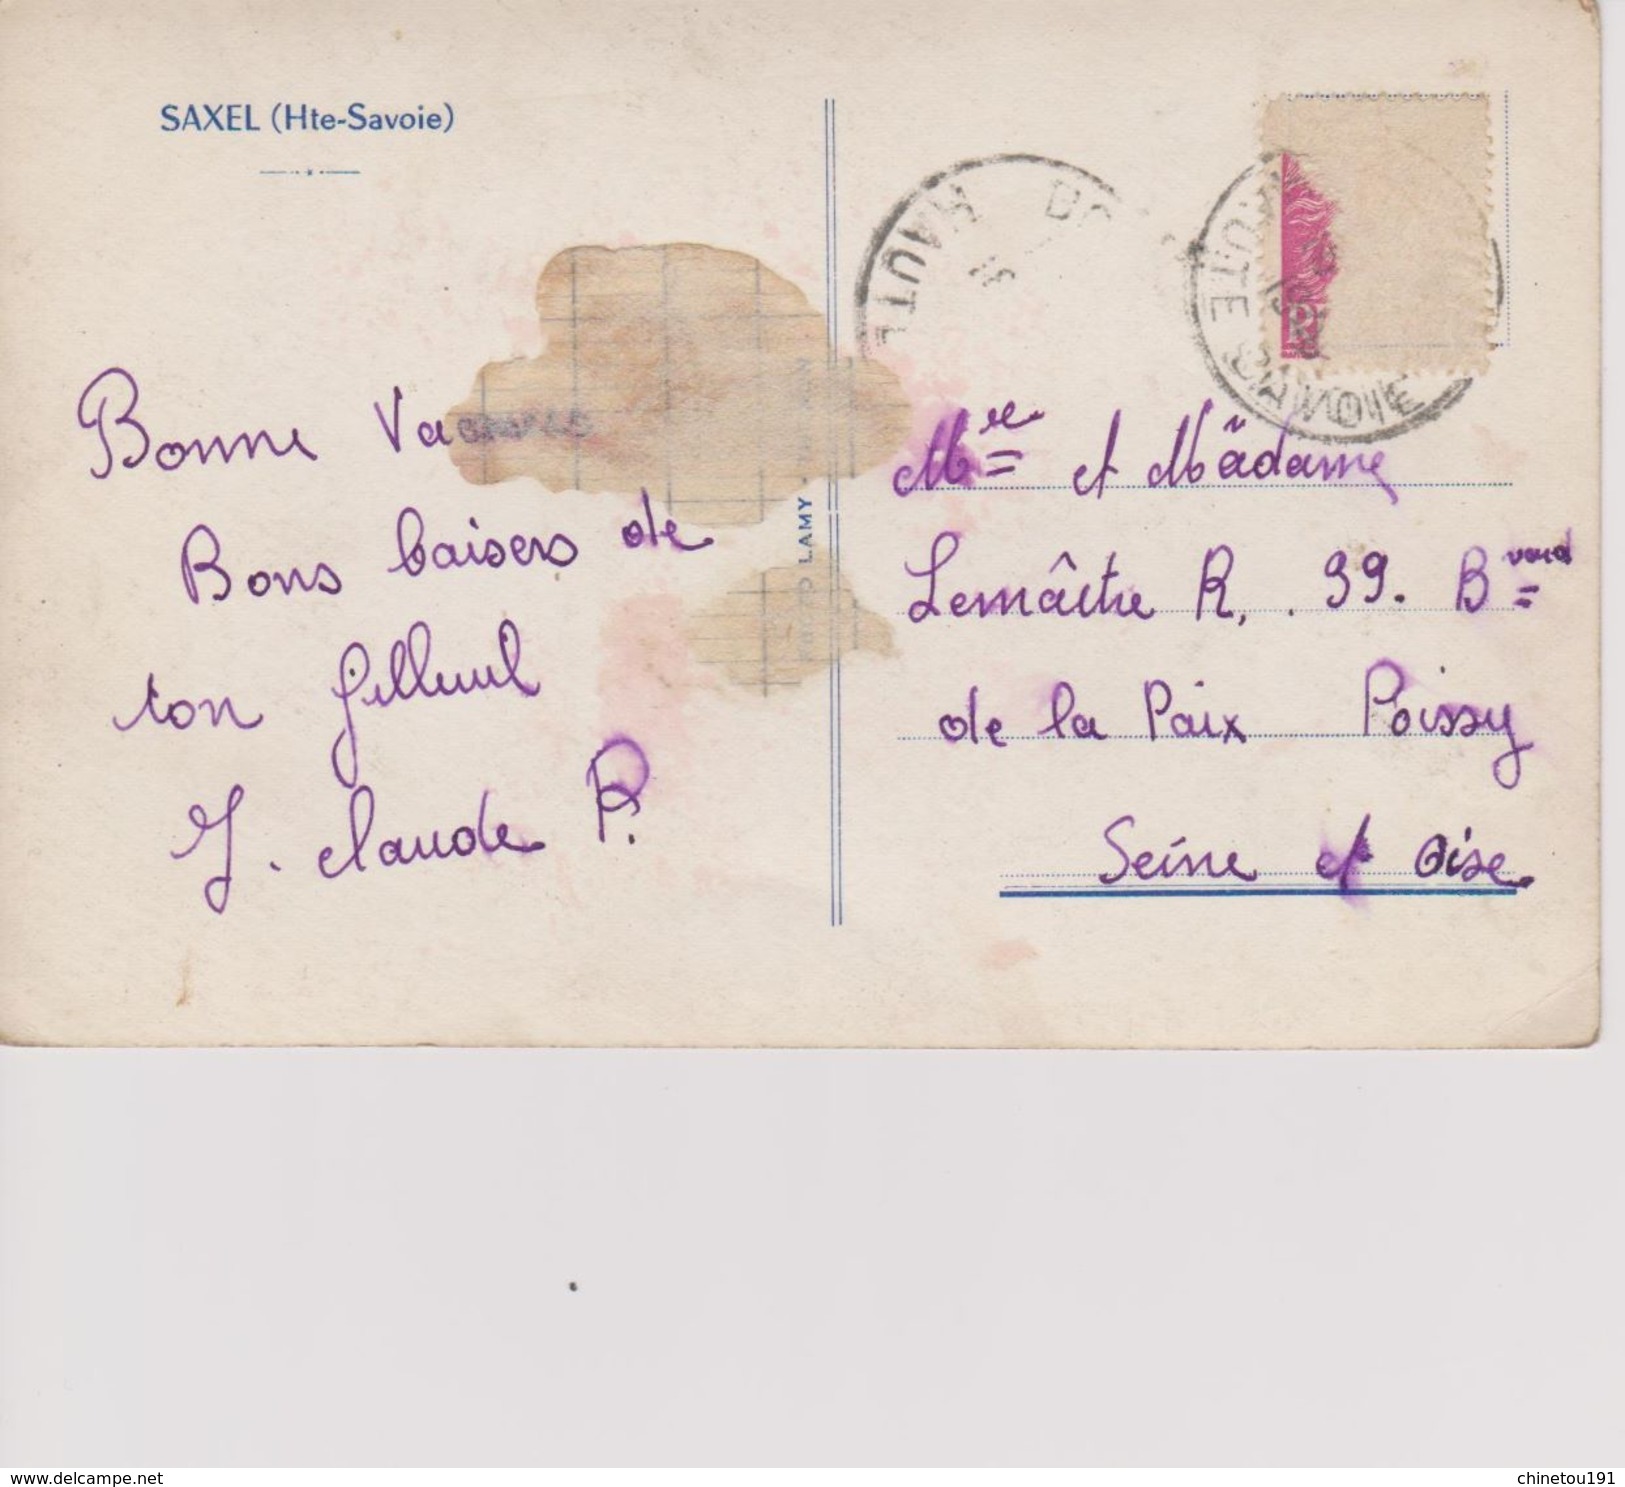 SAXEL (Hte-Savoie)
Bonne Vacances
Bons baisers de
ton filleul
J. Claude P.
LAMY
HAUTE
HAUTE SAVOIE
Mr et Madame
Lemâitre R, . 99. Bvard
de la Paix Poissy
Seine et Oise
www.delcampe.net
chinetou191